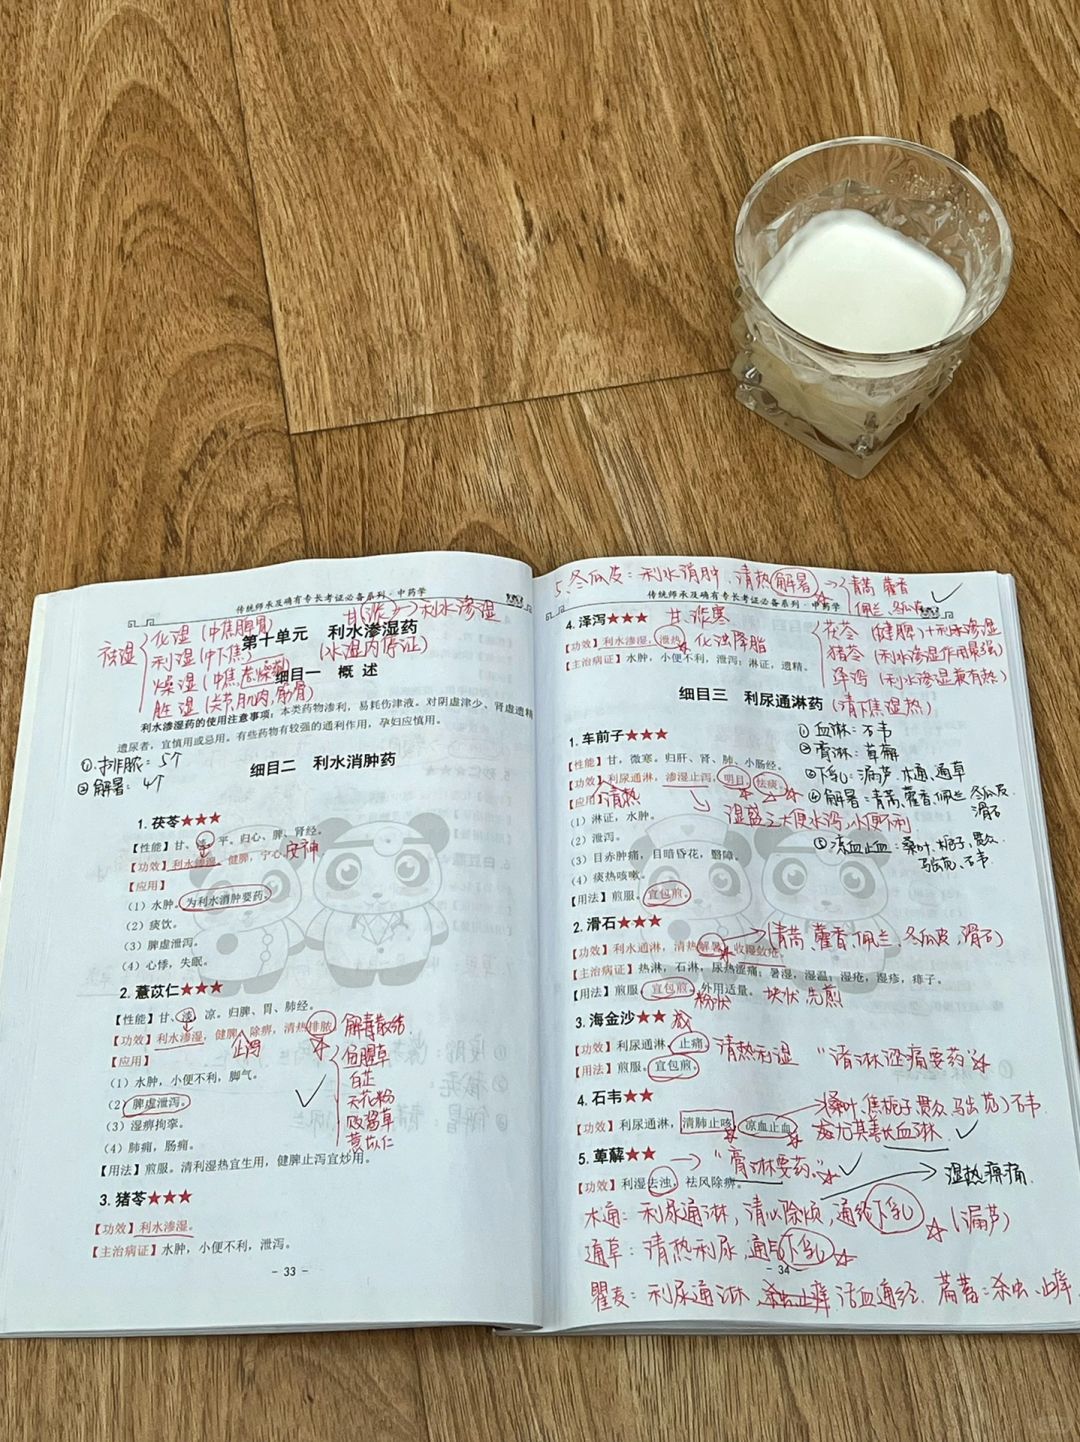 传统师承及确有专长考证必备系列·中药学
甘(淡)→利水渗湿
祛湿
化湿(中焦脾胃)
利湿(中下焦)
燥湿(中焦
胜湿(关节,肌肉,筋骨)
第十单元 利水渗湿药
(水湿内停证)
细目一 概述
利水渗湿药的使用注意事项:本类药物渗利,易耗伤津液。对阴虚津少、肾虚遗精
遗尿者,宜慎用或忌用。有些药物有较强的通利作用,孕妇应慎用。
①排脓:5个
②解暑:4个
细目二 利水消肿药
1.茯苓★★★
【性能】甘、淡,平。归心、脾、肾经。
【功效】利水渗湿,健脾,宁心。安神
【应用】
(1)水肿。为利水消肿要药。
(2)痰饮。
(3)脾虚泄泻。
(4)心悸,失眠。
2.薏苡仁★★★
【性能】甘、淡,凉。归脾、胃、肺经。
【功效】利水渗湿,健脾,除痹,清热排脓
止泻
解毒散结
【应用】
(1)水肿,小便不利,脚气。
(2)脾虚泄泻。
(3)湿痹拘挛。
(4)肺痈,肠痈。
鱼腥草
白芷
天花粉
败酱草
薏苡仁
【用法】煎服。清利湿热宜生用,健脾止泻宜炒用。
3.猪苓★★★
【功效】利水渗湿。
【主治病证】水肿,小便不利,泄泻。
- 33 -
5.冬瓜皮:利水消肿,清热解暑→青蒿 藿香
佩兰 冬瓜皮
传统师承及确有专长考证必备系列·中药学
4.泽泻★★★ 甘淡寒
【功效】利水渗湿,泄热 化浊降脂
【主治病证】水肿,小便不利,泄泻;淋证,遗精。
茯苓(健脾)+利水渗湿
猪苓(利水渗湿作用最强)
泽泻(利水渗湿兼有热)
(清下焦湿热)
细目三 利尿通淋药
1.车前子★★★
【性能】甘,微寒。归肝、肾、肺、小肠经。
【功效】利尿通淋,渗湿止泻,明目,祛痰。
清热
【应用】
湿盛之大便水泻,小便不利
(1)淋证,水肿。
(2)泄泻。
(3)目赤肿痛,目暗昏花,翳障。
(4)痰热咳嗽。
【用法】煎服,宜包煎。
①血淋:石韦
②膏淋:萆薢
③下乳:漏芦、木通、通草
④解暑:青蒿、藿香、佩兰、冬瓜皮
滑石
⑤凉血止血:桑叶、栀子、贯众
马齿苋、石韦
2.滑石★★★
【功效】利水通淋,清热解暑,收湿敛疮。
(青蒿、藿香、佩兰、冬瓜皮,滑石)
【主治病证】热淋,石淋,尿热涩痛;暑湿,湿温;湿疮,湿疹,痱子。
【用法】煎服,宜包煎。外用适量。
粉状 块状先煎
3.海金沙★★ 咸
【功效】利尿通淋,止痛 清热利湿 “诸淋涩痛要药”
【用法】煎服,宜包煎。
4.石韦★★
(桑叶、焦栀子、贯众、马齿苋)石韦
【功效】利尿通淋,清肺止咳,凉血止血
故尤其善长血淋
5.萆薢★★ →“膏淋要药”
【功效】利湿去浊,祛风除痹。
湿热痹痛
木通:利尿通淋,清心除烦,通经下乳(漏芦)
通草:清热利尿,通气下乳
- 34 -
瞿麦:利尿通淋,杀虫止痒 活血通经.萹蓄:杀虫、止痒